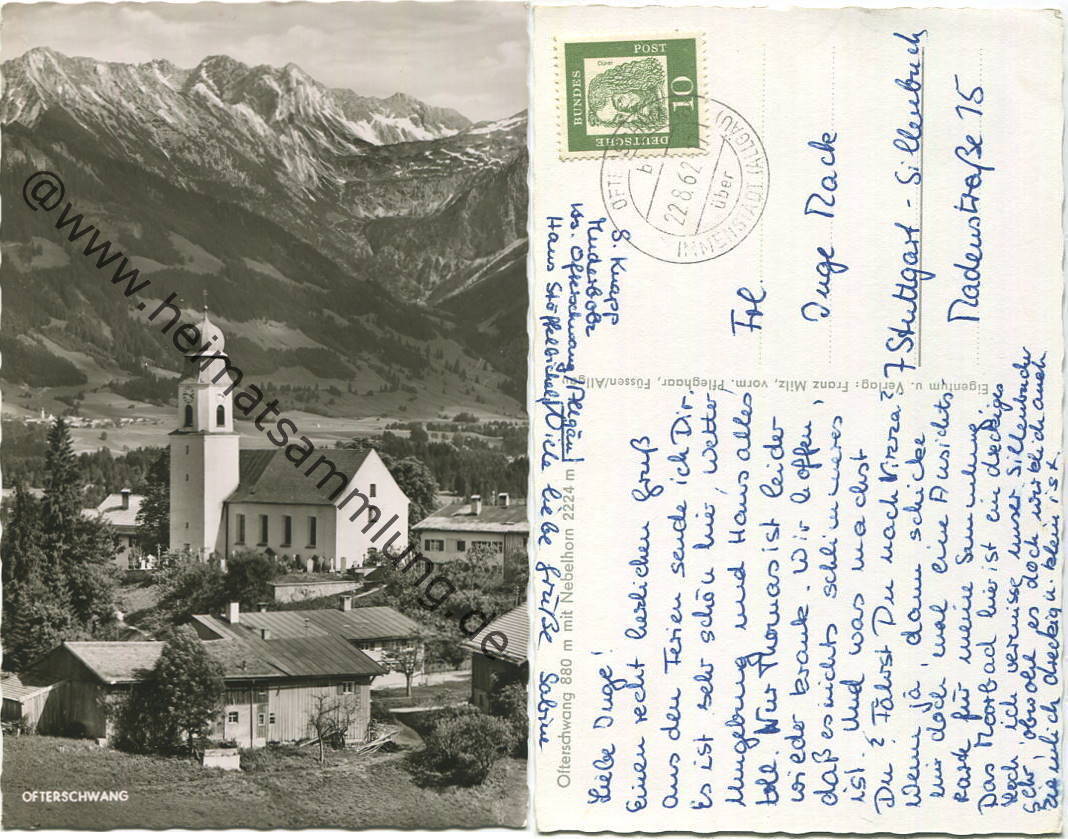 OFTERSCHWANG
@www.heimatsammlung.de
DEUTSCHE
BUNDES
POST
10
Dürer
22.8.62
über
IMMENSTADT (ALLGÄU)
S. Knapp
Muderbolz
bs. Ofterschwang/Allgäu
Haus
Viele liebe Grüße Sabine
Frl.
Inge Mack
7 Stuttgart-Sillenbuch
Madenstraße 15
Eigentum u. Verlag: Franz Milz, vorm. Pfleghaar, Füssen/Allgäu
Ofterschwang 880 m mit Nebelhorn 2224 m
Liebe Inge!
Einen recht herlichen Gruß
aus den Ferien sende ich Dir.
Es ist sehr schön hier, Wetter
Umgebung und Haus alles
toll. Nur Thomas ist leider
wieder krank. Wir hoffen,
daß es nichts schlimmeres
ist. Und was machst
Du? Fährst Du nach Nizza?
Wenn ja, dann schicke
mir doch mal eine Ansichts-
karte für meine Sammlung.
Das Moorbad hier ist ein dreckiges
Loch, ich vermisse unser Sillenbuch
sehr, obwohl es doch wirklich auch
ziemlich dreckig u. klein ist.